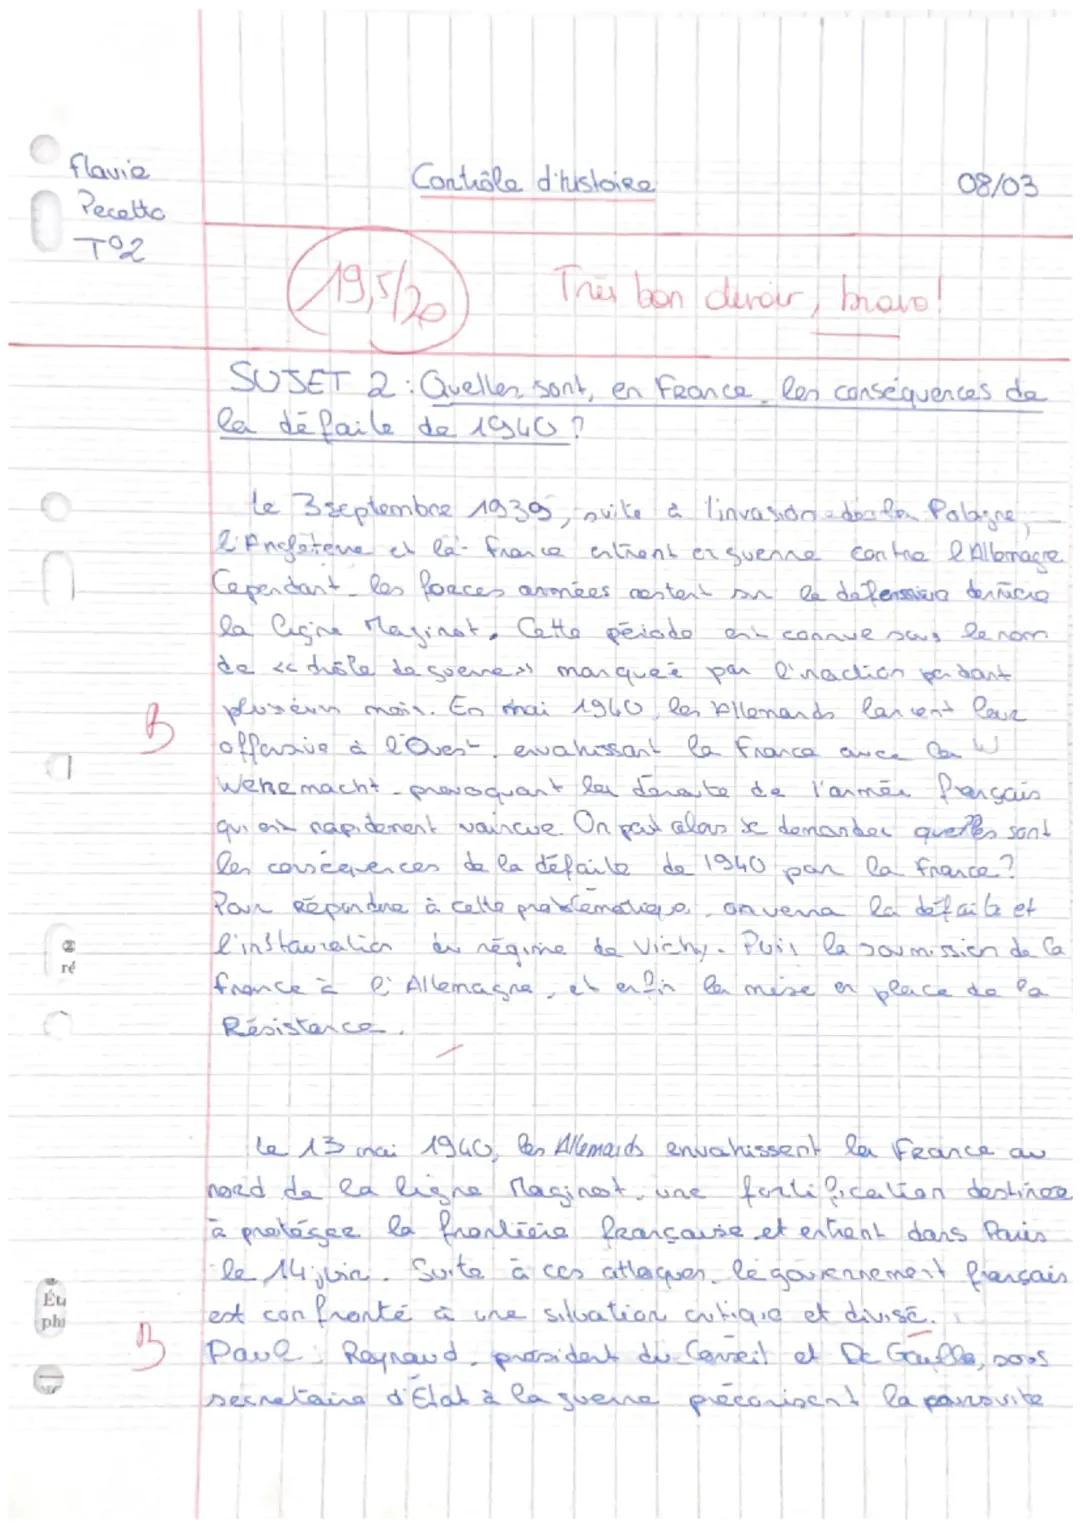 Flavie
Pecetto
T°2
Contrôle d'histoire
08/03
19,5/20
Très bon devoir, bravo!
SUJET 2 : Quelles sont, en France les conséquences de
la défaite de 1940 ?
Le 3 septembre 1939, suite à l'invasion de la Pologne,
l'Angleterre et la France entrent en guerre contre l'Allemagne
Cependant les forces armées restent sur la défensive derrière
la ligne Maginot. Cette période est connue sous le nom
de << drôle de guerre >> marquée par l'inaction pendant
plusieurs mois. En mai 1940, les Allemands lancent leur
B
offensive à l'Ouest, envahissant la France avec la W
Wehrmacht provoquant la déroute de l'armée français
qui est rapidement vaincue. On peut alors se demander quelles sont
les conséquences de la défaite de 1940 par la France ?
Pour répondre à cette problématique, on verra la défaite et
l'instauration du régime de Vichy. Puis la soumission de la
france à l'Allemagne, et enfin la mise en place de la
Résistance.
ré
Le 13 mai 1940, les Allemands envahissent la France au
nord de la ligne Maginot, une fortification destinée
à protéger la frontière française et entrent dans Paris
le 14 juin. Suite à ces attaques, le gouvernement français
est confronté à une situation critique et divisé.
Étu
phi
B
Paul Reynaud, président du Conseil et De Gaulle, sous
secrétaire d'État à la guerre préconisent la poursuite